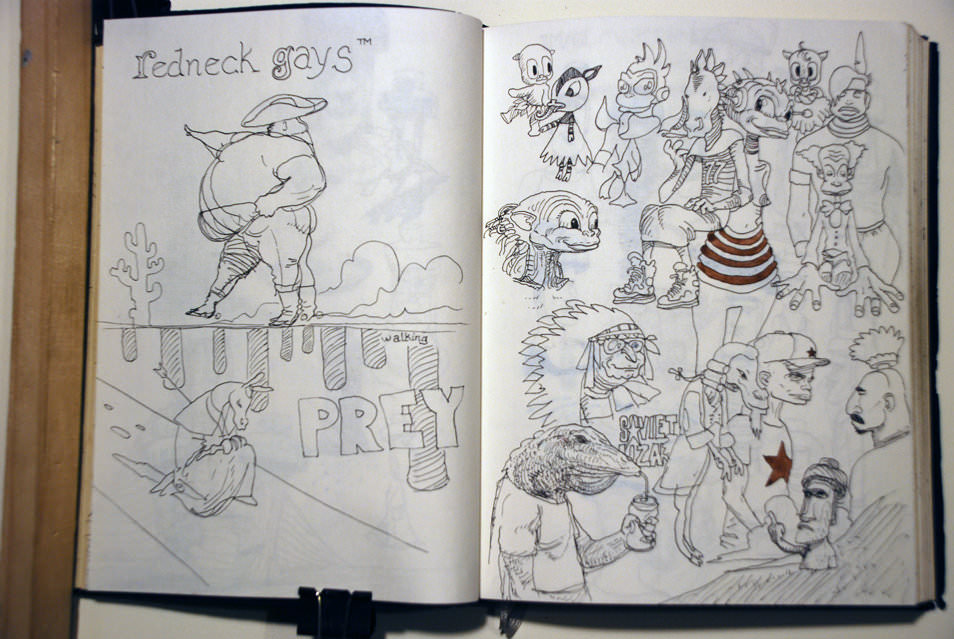 redneck gays™
walking
PREY
SAVIET